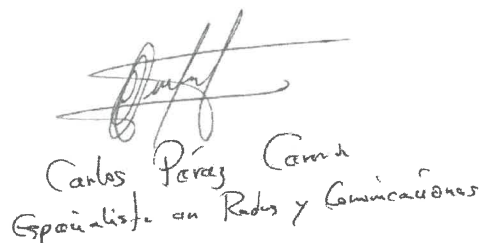 Carlos Pérez
Especialista en Redes y Comunicaciones